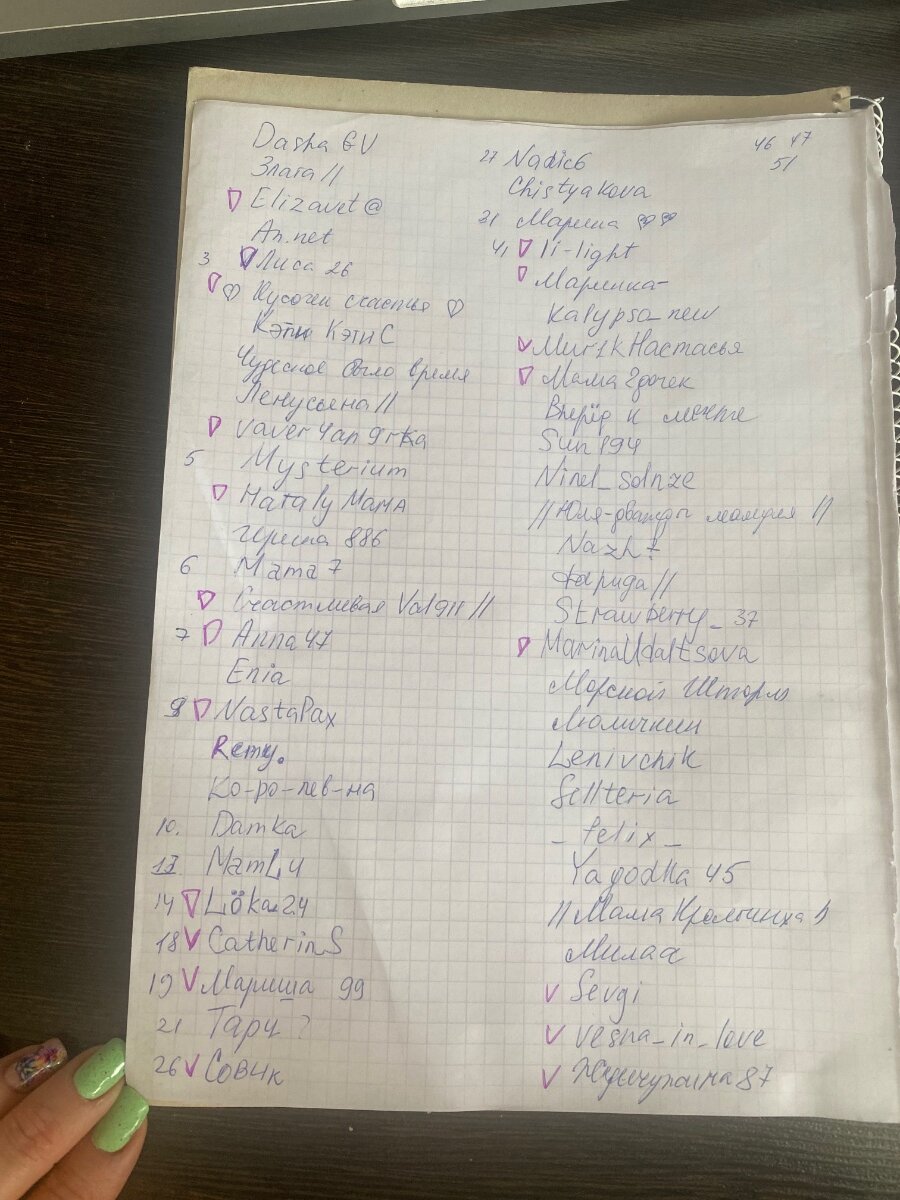 Dasha GV
Злата //
Elizavet@
An.net
3 Лиса 26
♡ Кусочек счастья ♡
Кэти КэтиС
Чудесное было время
Ленусьена //
vaver4an9rka
5 Mysterium
Nataly Мама
886
6 Mama 7
Счастливая Val911 //
7 Anna 47
Enia
8 NastaPax
Remy.
Ко-ро-лев-на
10. Damka
13 MamL4
14 Löka24
18 CatherinS
19 Мариша 99
21 Тару ?
26 Совик
46 47
51
27 Nadic6
Chistyakova
31 Мариша ♡♡
41 li-light
Маришка-
Kalypsa_new
Murzk Настасья
Мама 2 дочек
Вперёд к мечте
Sun 194
Ninel_solnze
// Юля-дважды мамуля //
Nazh
Фарида //
Strawberry_37
MarinaUdaltsova
Морской Шторм
Lenivchik
Sellteria
_felix_
Yagodka 45
// Мама Крольчиха //
Милаа
Sevgi
vesna_in_love
Жемчужина87